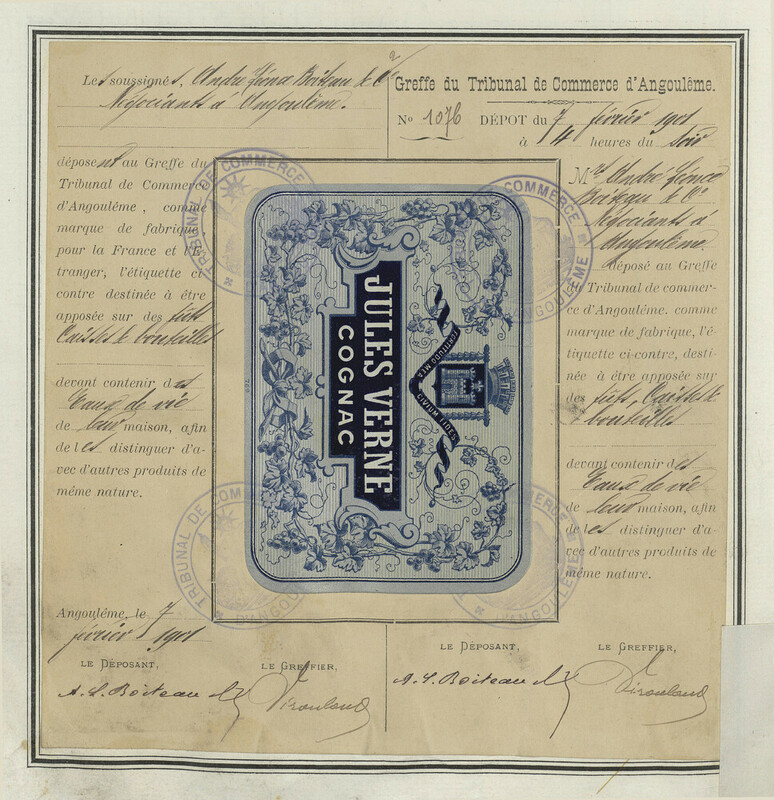 Les soussignés, André Boiteau & Cie
Négociants à Angoulême.
déposent au Greffe du
Tribunal de Commerce
d'Angoulême, comme
marque de fabrique,
pour la France et l'É-
tranger, l'étiquette ci-
contre destinée à être
apposée sur des fûts
Caisses & bouteilles
devant contenir des
Eaux de vie
de leur maison, afin
de les distinguer d'a-
vec d'autres produits de
même nature.
Angoulême, le 7
février 1901
LE DÉPOSANT,
LE GREFFIER,
A. L. Boiteau
JULES VERNE
COGNAC
FORTITUDO MEA
CIVIUM FIDES
TRIBUNAL DE COMMERCE
D'ANGOULÊME
TRIBUNAL DE COMMERCE
D'ANGOULÊME
TRIBUNAL DE COMMERCE
D'ANGOULÊME
TRIBUNAL DE COMMERCE
D'ANGOULÊME
Greffe du Tribunal de Commerce d'Angoulême.
No 1076 DÉPOT du 7 février 1901
à 4 heures du soir
Mrs André
Boiteau & Cie
Négociants à
Angoulême.
déposé au Greffe
du Tribunal de commer-
ce d'Angoulême. comme
marque de fabrique, l'é-
tiquette ci-contre, desti-
née à être apposée sur
des fûts, Caisses &
bouteilles
devant contenir des
Eaux de vie
de leur maison, afin
de les distinguer d'a-
vec d'autres produits de
même nature.
LE DÉPOSANT,
LE GREFFIER,
A. L. Boiteau